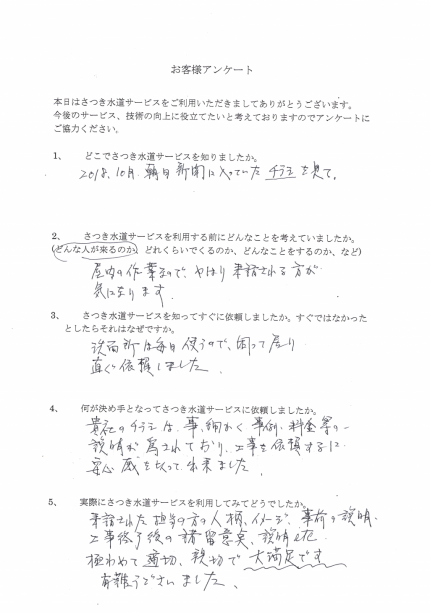 お客様アンケート
本日はさつき水道サービスをご利用いただきましてありがとうございます。
今後のサービス、技術の向上に役立てたいと考えておりますのでアンケートに
ご協力ください。
1、 どこでさつき水道サービスを知りましたか。
2018.10月.朝日新聞に入っていたチラシを見て。
2、 さつき水道サービスを利用する前にどんなことを考えていましたか。
(どんな人が来るのか、どれくらいでくるのか、どんなことをするのか、など)
屋内の作業なので、やはり来訪される方が
気になります。
3、 さつき水道サービスを知ってすぐに依頼しましたか。すぐではなかった
としたらそれはなぜですか。
洗面所は毎日使うので、困って居り
直ぐ依頼しました。
4、 何が決め手となってさつき水道サービスに依頼しましたか。
貴社のチラシは、事細かく事例、料金等の
説明が為されており、工事を依頼するに
安心感を以って出来ました。
5、 実際にさつき水道サービスを利用してみてどうでしたか。
来訪された担当の方の人柄、イメージ、事前の説明、
工事終了後の諸留意点、説明も
極わめて適切、親切で大満足です
有難うございました。